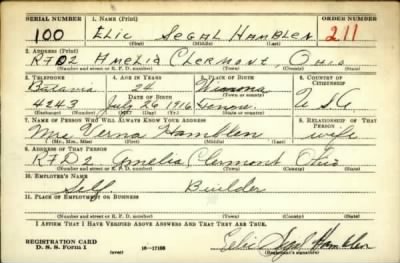 SERIAL NUMBER 1. NAME (Print) ORDER NUMBER
100 Elic Segal Hamblen 211
(First) (Middle) (Last)
2. ADDRESS (Print)
RFD2 Amelia Clermont, Ohio
(Number and street or R. F. D. number) (Town) (County) (State)
3. TELEPHONE 4. AGE IN YEARS 5. PLACE OF BIRTH 6. COUNTRY OF CITIZENSHIP
Batavia 24 Winona
DATE OF BIRTH (Town or county)
4243 July 26 1916 U S A
(Exchange) (Number) (Mo.) (Day) (Yr.) (State or country)
7. NAME OF PERSON WHO WILL ALWAYS KNOW YOUR ADDRESS 8. RELATIONSHIP OF THAT PERSON
Mrs Verna Hamblen wife
(Mr., Mrs., Miss) (First) (Middle) (Last)
9. ADDRESS OF THAT PERSON
RFD2. Amelia Clermont Ohio
(Number and street or R. F. D. number) (Town) (County) (State)
10. EMPLOYER'S NAME
Self Builder
11. PLACE OF EMPLOYMENT OR BUSINESS
(Number and street or R. F. D. number) (Town) (County) (State)
I AFFIRM THAT I HAVE VERIFIED ABOVE ANSWERS AND THAT THEY ARE TRUE.
REGISTRATION CARD
D. S. S. Form 1 (over) 16-17105 Elic Segal Hamblen
(Registrant's signature)